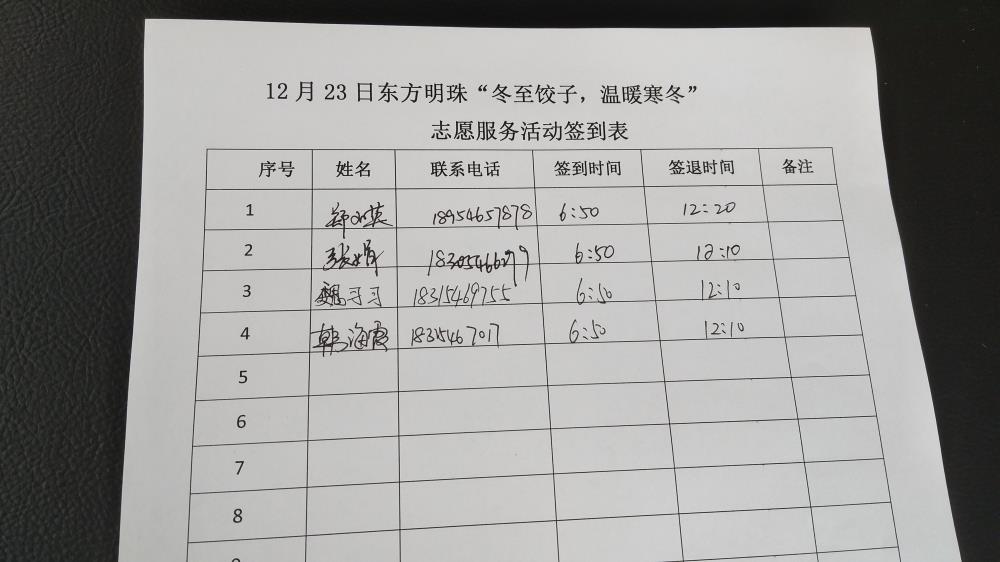 12月23日东方明珠“冬至饺子，温暖寒冬”
志愿服务活动签到表
序号 姓名 联系电话 签到时间 签退时间 备注
1 18954657878 6:50 12:20
2 张娟 6:50 12:10
3 魏习习 18315469755 6:50 12:10
4 韩海霞 1835467017 6:50 12:10
5
6
7
8